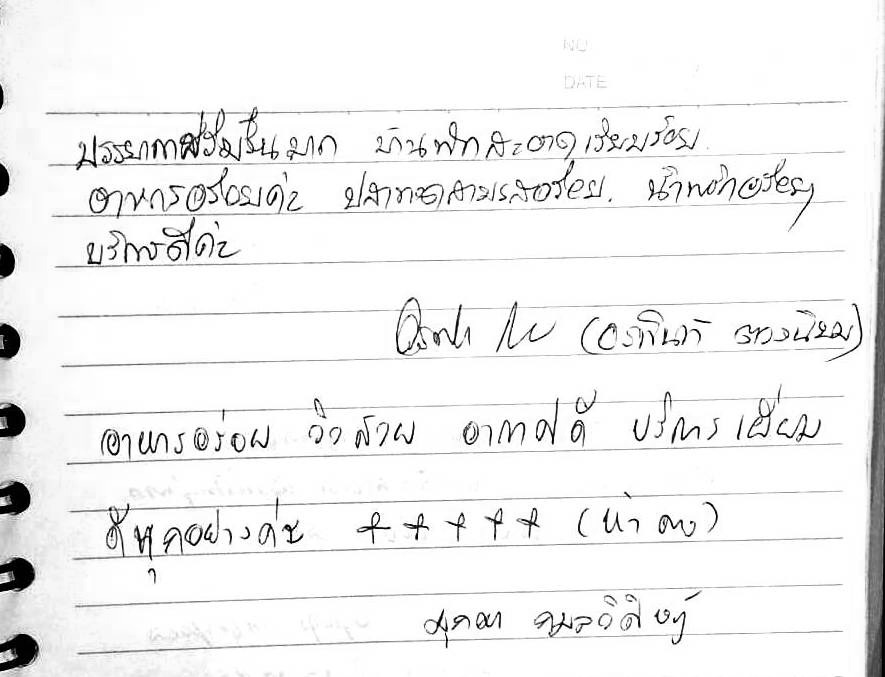 NO
DATE
บรรยากาศร่มรื่นมาก บ้านพักสะอาดเรียบร้อย
อาหารอร่อยค่ะ ปลาทอดสามรสอร่อย. น้ำพริกอร่อยๆ
บริการดีค่ะ
อาหารอร่อย วิวสวย อากาศดี บริการเยี่ยม
ดีทุกอย่างค่ะ + + + + + (ห้าดาว)